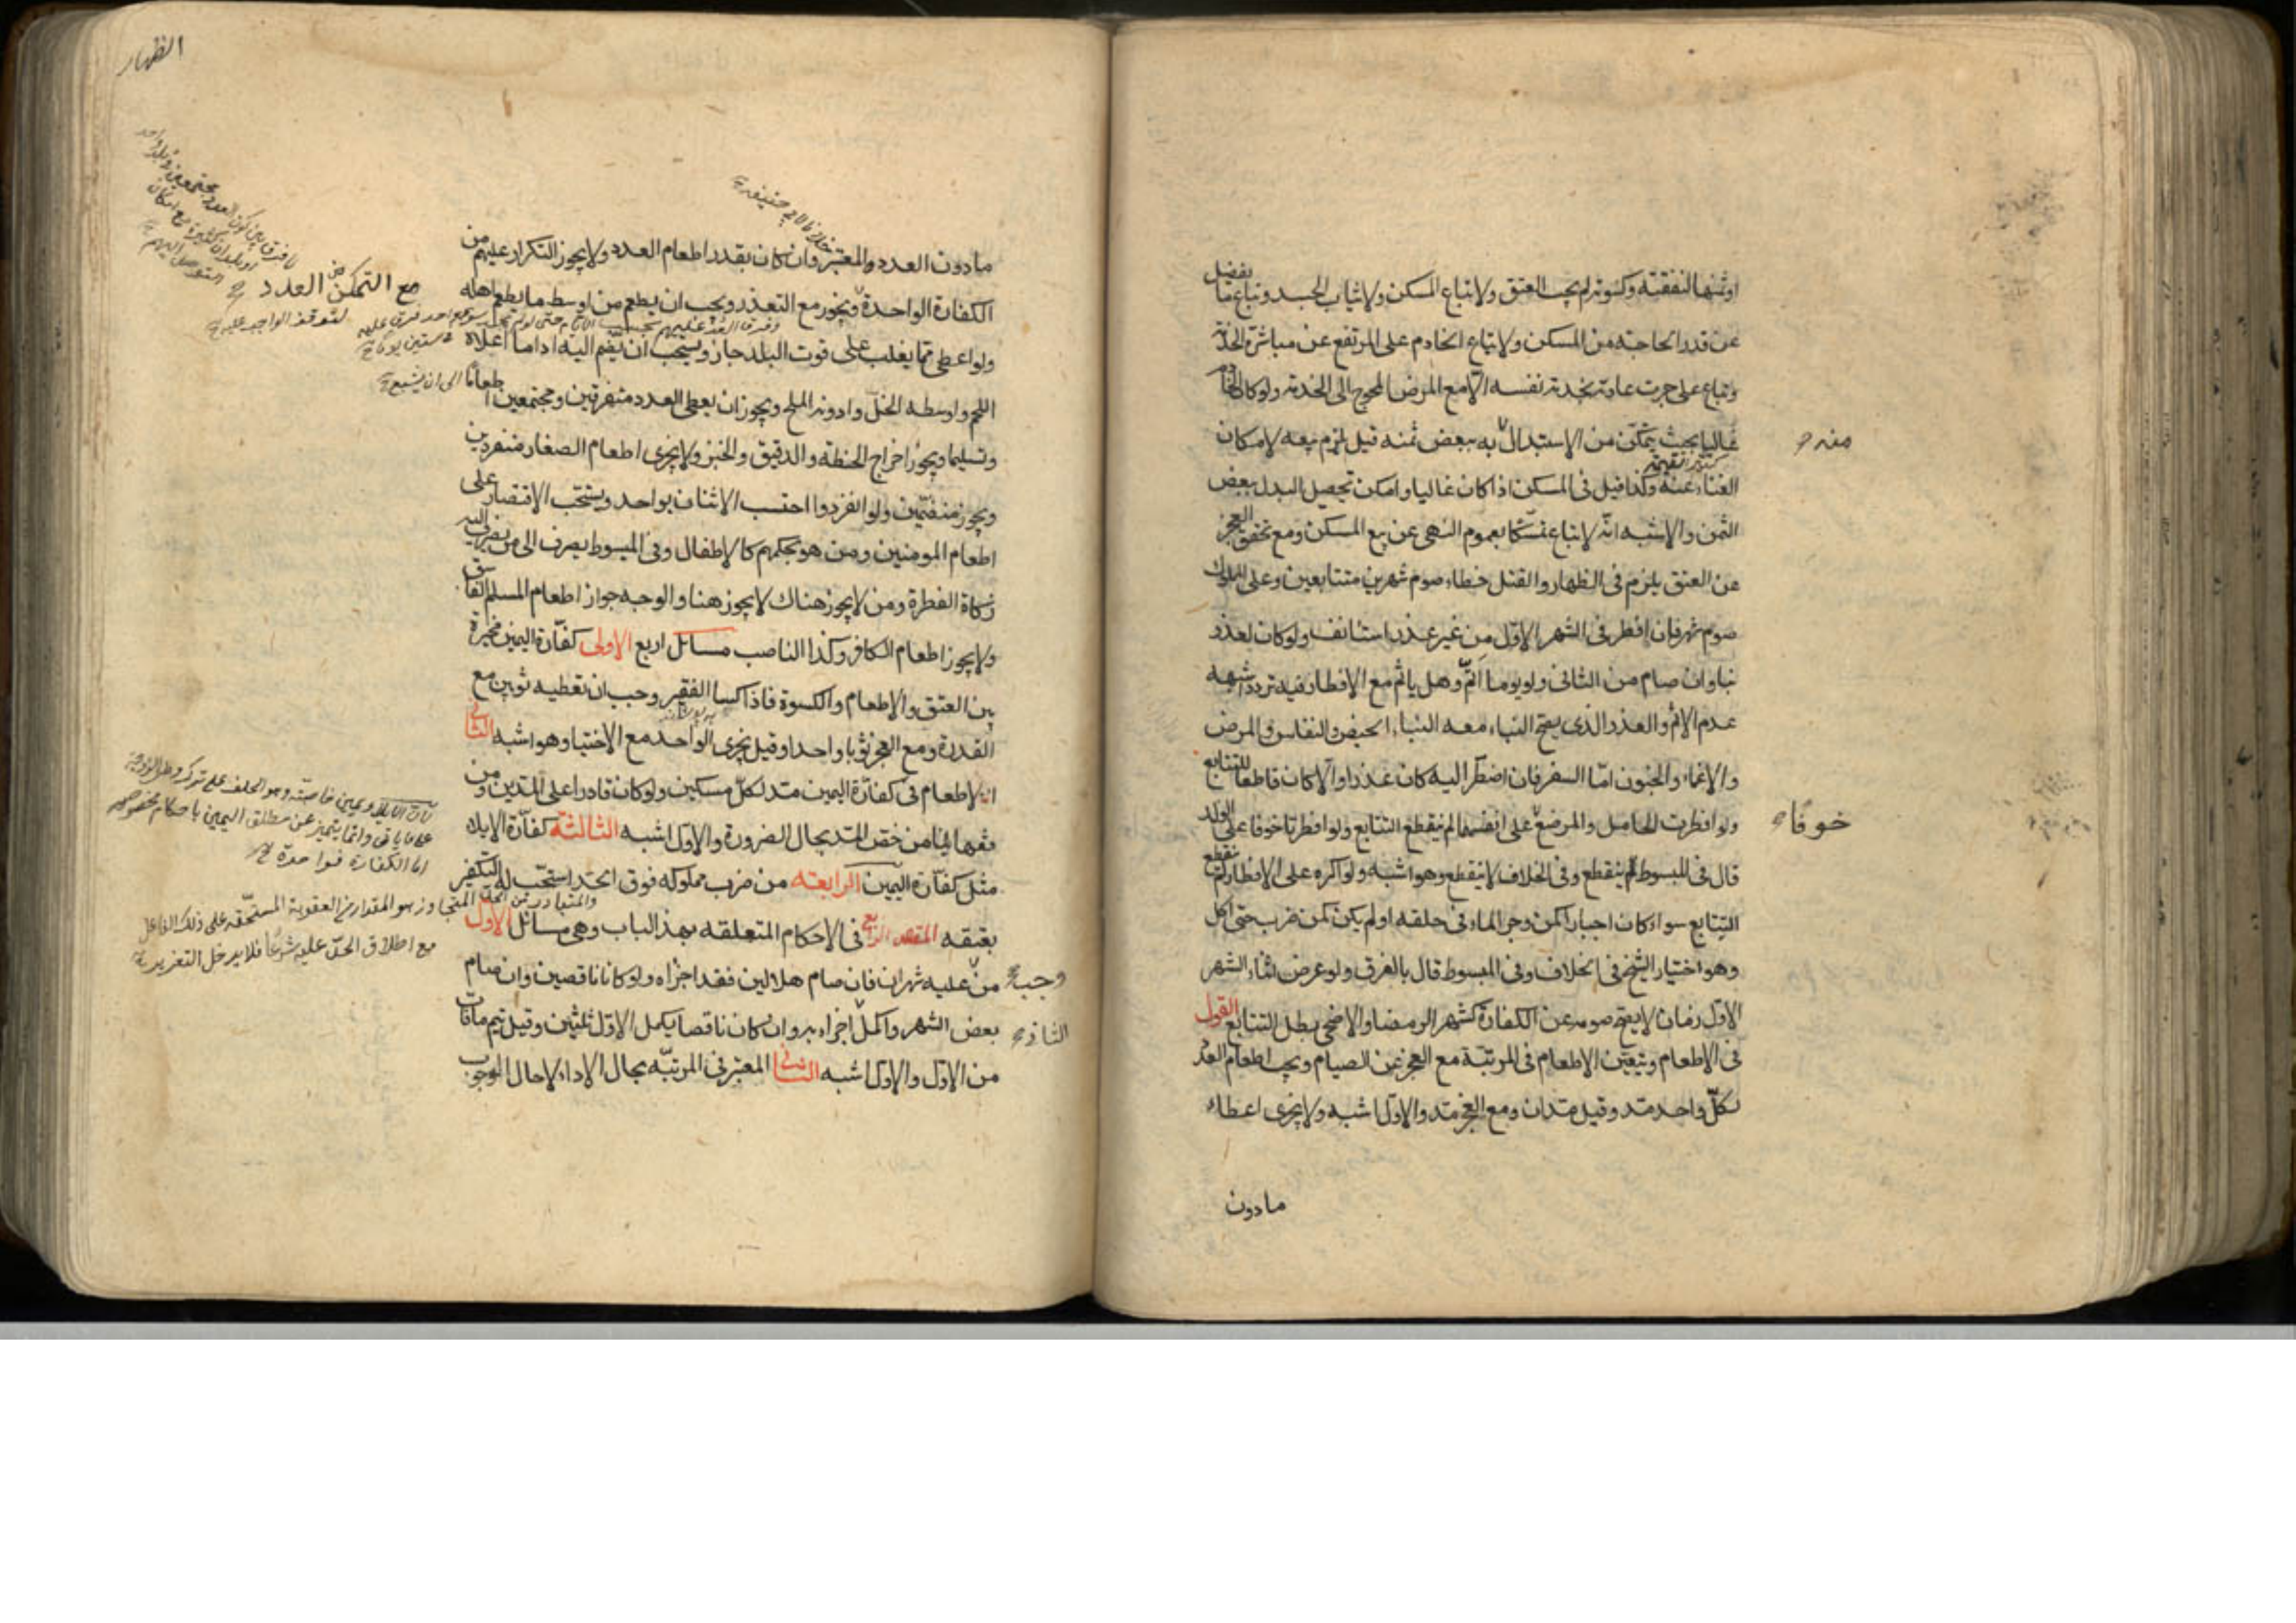 او ثمنها لنفقته وكسوته لم يجب العتق ولا تباع المسكن ولا ثياب الجسد وتباع ما يفضل
عن قدر الحاجة من المسكن ولا تباع الخادم على المرتفع عن مباشرة الخدمة
وتباع على من جرت عادته بخدمة نفسه الا مع المرض المحوج الى الخدمة ولو كان الخادم
غاليا بحيث يتمكن من الاستبدال به ببعض ثمنه قيل يلزم بيعه لامكان
منه
الغناء عنه وكذا قيل في المسكن اذا كان غاليا وامكن تحصيل البدل ببعض
الثمن والاشبه انه لا يباع تمسكا بعموم النهي عن بيع المسكن ومع تحقق العجز
عن العتق يلزم في الظهار والقتل خطاء صوم شهرين متتابعين وعلى المملوك
صوم شهر فان افطر في الشهر الاول من غير عذر استانف ولو كان لعذر
بنا وان صام من الثاني ولو يوما اتم وهل ياثم مع الافطار فيه تردد اشبهه
عدم الاثم والعذر الذي يصح البناء معه البناء الحيض والنفاس والمرض
والاغماء والجنون اما السفر فان اضطر اليه كان عذرا والا كان قاطعا للتتابع
ولو افطرت الحامل والمرضع على انفسهما لم ينقطع التتابع ولو افطرتا خوفا على الولد
خوفا
قال في المبسوط لم ينقطع وفي الخلاف لا ينقطع وهو اشبه ولو اكره على الافطار لم ينقطع
التتابع سواء كان اجبارا كمن وجر الماء في حلقه او لم يكن كمن ضرب حتى اكل
وهو اختيار الشيخ في الخلاف وفي المبسوط قال بالفرق ولو عرض اثناء الشهر
الاول زمان لا يصح صومه عن الكفارة كشهر الرمضان والاضحى بطل التتابع القول
في الاطعام ويتعين الاطعام في المرتبة مع العجز عن الصيام ويجب اطعام العدد
لكل واحد مد وقيل مدان ومع العجز مد والاول اشبه ولا يجزي اعطاء
مادون
الظهار
مادون العدد والمعتبر وان كان بقدر اطعام العدد ولا يجوز التكرار عليهم من
الكفارة الواحدة ويجوز مع التعذر ويجب ان يطعم من اوسط ما يطعم اهله
مع التمكن من العدد
ولو اعطى مما يغلب على قوت البلد جاز ويستحب ان يضم اليه اداما اعلاه
اللحم واوسطه الخل وادونه الملح ويجوز ان يعطى العدد متفرقين ومجتمعين اطعاما
وتسليما ويجوز اخراج الحنطة والدقيق والخبز ولا يجزي اطعام الصغار منفردين
ويجوز منضمين ولو انفردوا احتسب الاثنان بواحد ويستحب الاقتصار على
اطعام المومنين ومن هو بحكمهم كالاطفال وفي المبسوط يصرف الى من يصرف اليه
زكاة الفطرة ومن لا يجوز هناك لا يجوز هنا والوجه جواز اطعام المسلم الفاسق
ولا يجوز اطعام الكافر وكذا الناصب مسائل اربع الاولى كفارة اليمين مخيرة
بين العتق والاطعام والكسوة فاذا كسا الفقير وجب ان تعطيه ثوبين مع
القدرة ومع العجز ثوبا واحدا وقيل يجزي الواحد مع الاختيار وهو اشبه الثانية
الاطعام في كفارة اليمين مد لكل مسكين ولو كان قادرا على المدين ومن
فقهائنا من خص المد بحال الضرورة والاول اشبه الثالثة كفارة الايلاء
مثل كفارة اليمين الرابعة من ضرب مملوكه فوق الحد استحب له التكفير
بعتقه المقصد الرابع في الاحكام المتعلقة بهذا الباب وهي مسائل الاول
من عليه شهران فان صام هلالين فقد اجزاه ولو كانا ناقصين وان صام
وجب
بعض الشهر واكمل اجزاه به وان كان ناقصا يكمل الاول ثلثين وقيل يتم ما فات
الثاني
من الاول والاول اشبه الثاني المعتبر في المرتبة بحال الاداء لا حال الوجوب
لان الايلاء يمين خاصة وهو الحلف على ترك وطي الزوجة
على ما ياتي وانما يتميز عن مطلق اليمين باحكام مخصوصة
اما الكفارة فواحدة
والمتبادر من الحد المتجاوز هو المقدار من العقوبة المستحقة على ذلك الفاعل
مع اطلاق الحد عليه شرعا فلا يدخل التعزير